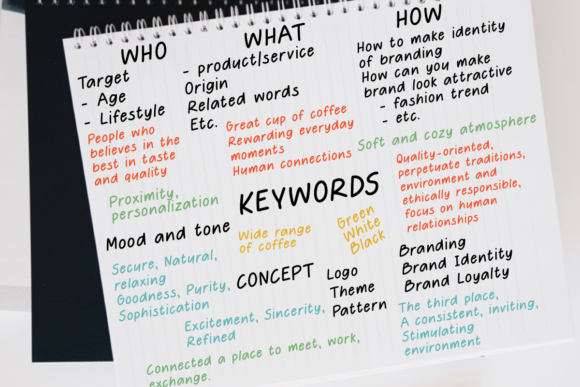 WHO
Target
- Age
- Lifestyle
People who
believes in the
best in taste
and quality
Proximity,
personalization
WHAT
- product|service
Origin
Related words
Etc.
Great cup of coffee
Rewarding everyday
moments
Human connections
HOW
How to make identity
of branding
How can you make
brand look attractive
- fashion trend
- etc.
Soft and cozy atmosphere
Quality-oriented,
perpetuate traditions,
environment and
ethically responsible,
focus on human
relationships
KEYWORDS
Wide range
of coffee
Green
White
Black
Mood and tone
Secure, Natural,
relaxing
Goodness, Purity,
Sophistication
CONCEPT
Logo
Theme
Pattern
Excitement, Sincerity,
Refined
Connected a place to meet, work,
exchange.
Branding
Brand Identity
Brand Loyalty
The third place,
A consistent, inviting,
Stimulating
environment